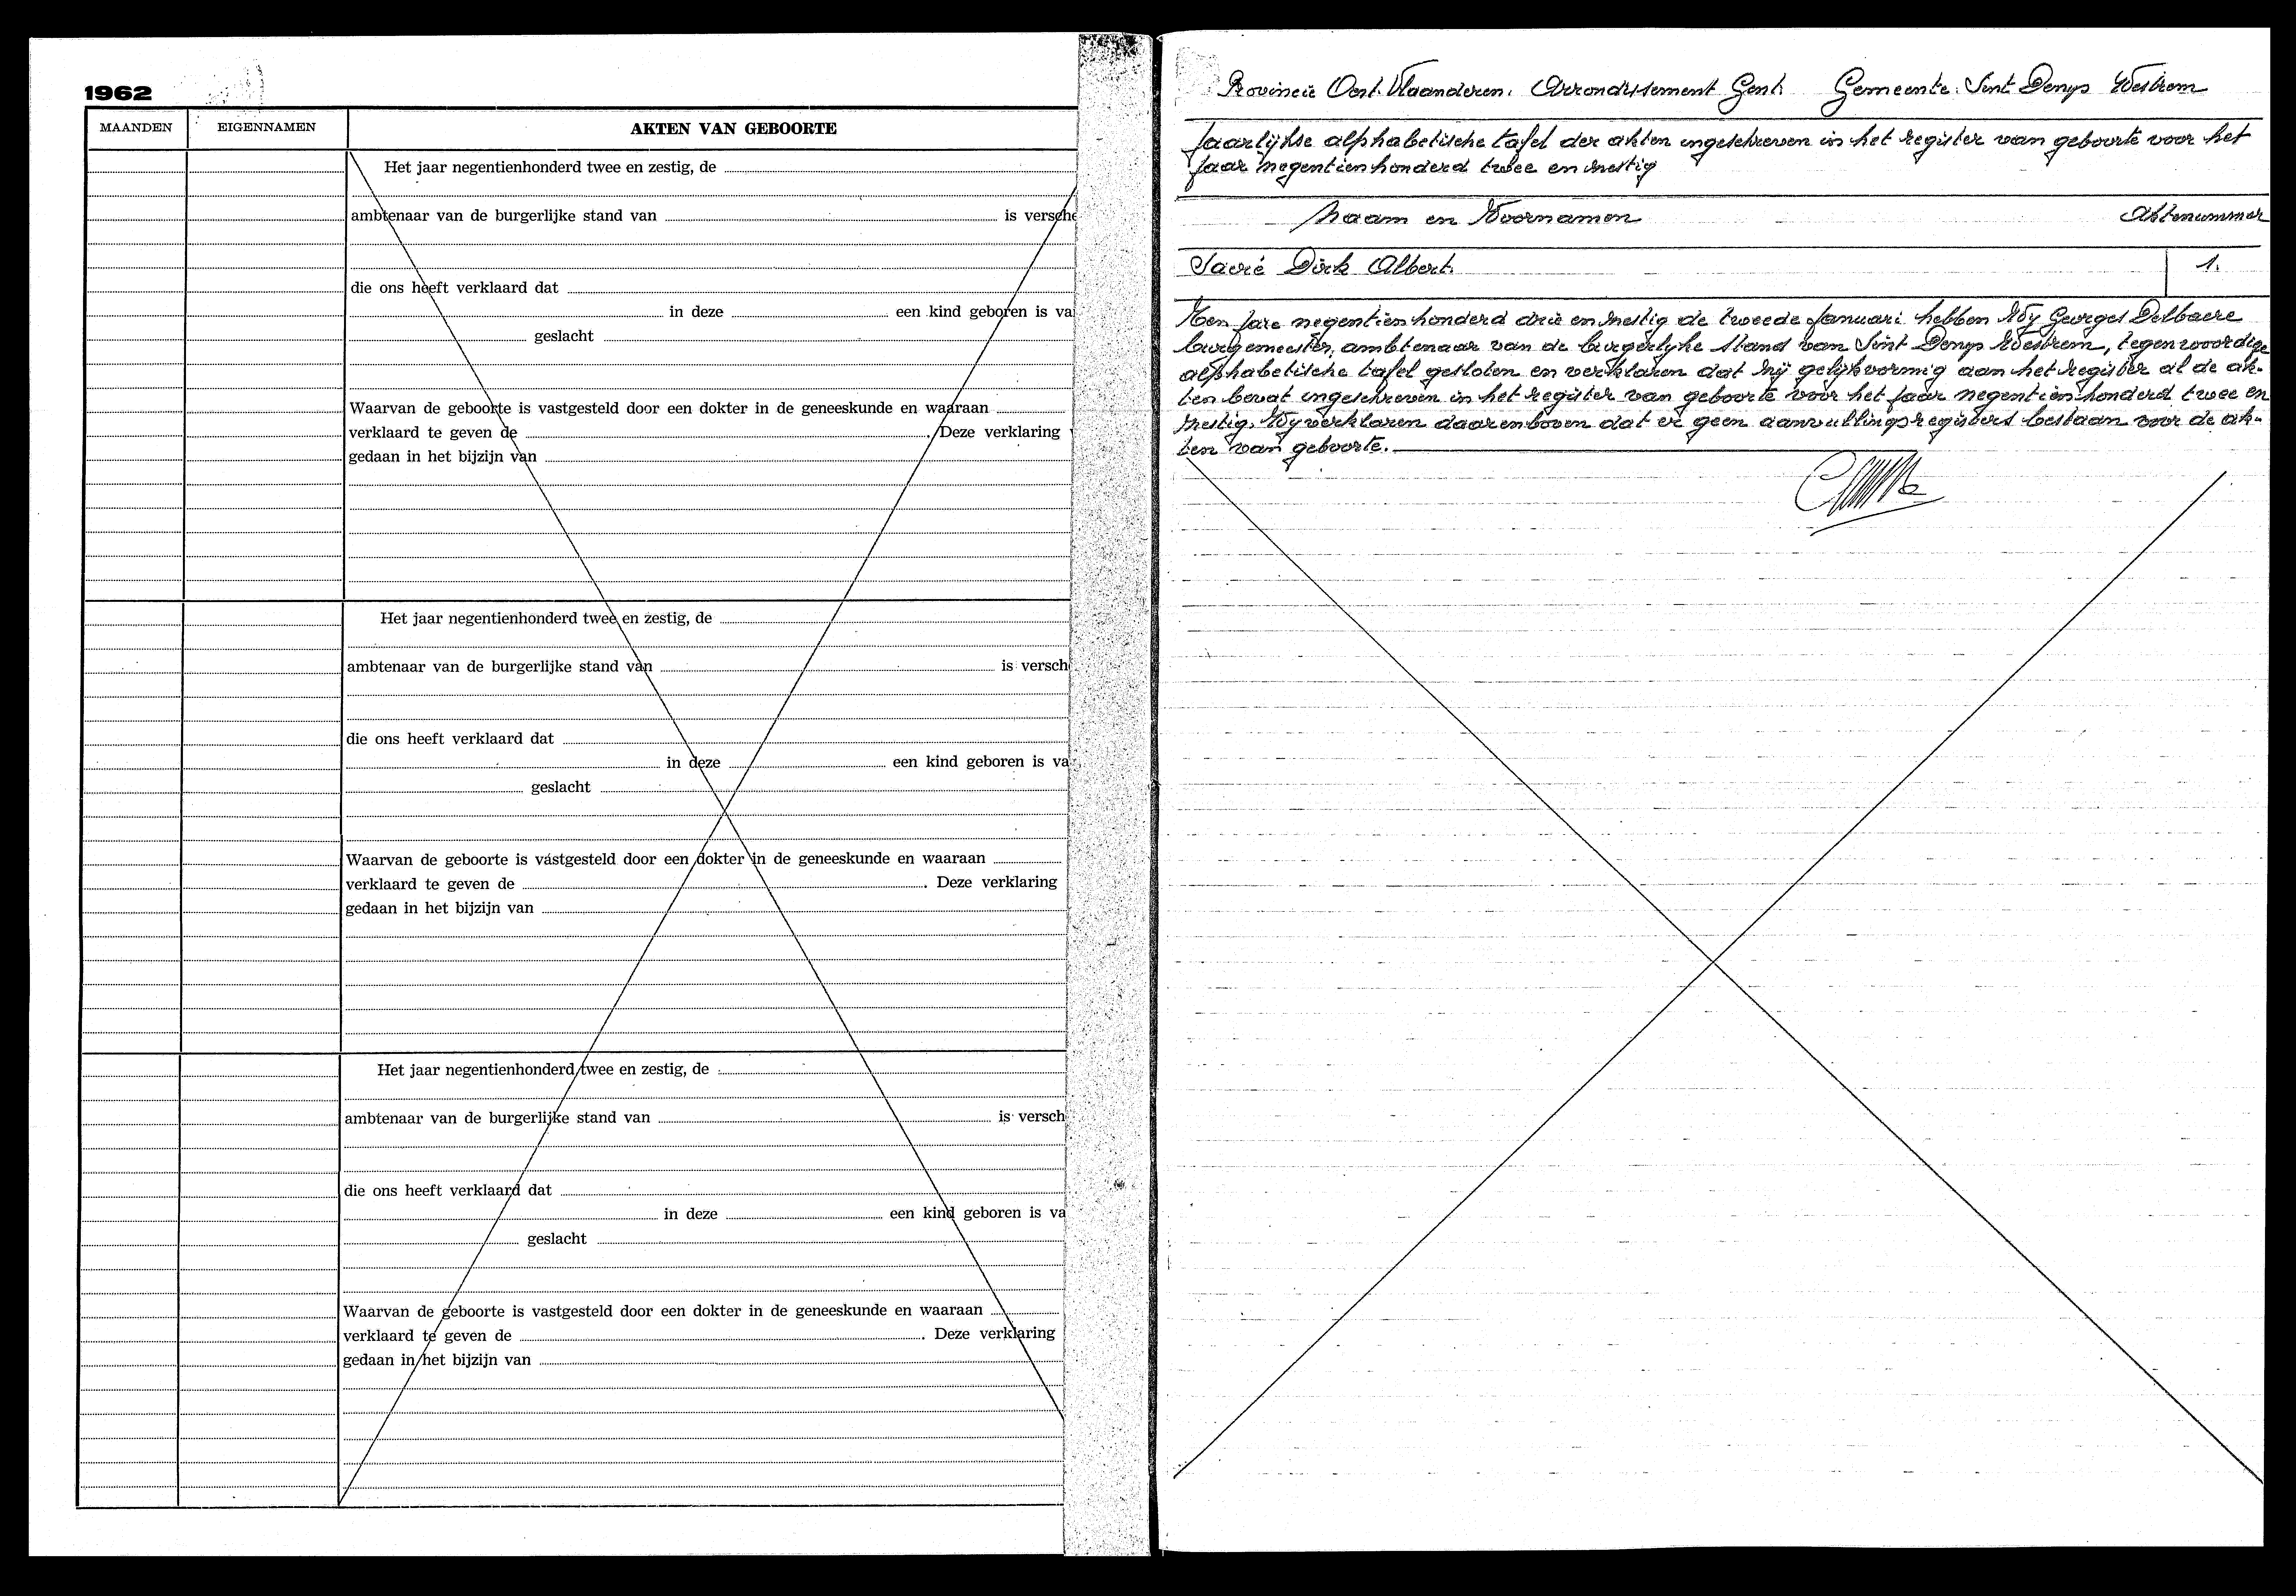 1962
MAANDEN EIGENNAMEN AKTEN VAN GEBOORTE
Het jaar negentienhonderd twee en zestig, de
ambtenaar van de burgerlijke stand van is versche
die ons heeft verklaard dat
in deze een kind geboren is va
geslacht
Waarvan de geboorte is vastgesteld door een dokter in de geneeskunde en waaraan
verklaard te geven de . Deze verklaring
gedaan in het bijzijn van
Het jaar negentienhonderd twee en zestig, de
ambtenaar van de burgerlijke stand van is versch
die ons heeft verklaard dat
in deze een kind geboren is va
geslacht
Waarvan de geboorte is vastgesteld door een dokter in de geneeskunde en waaraan
verklaard te geven de . Deze verklaring
gedaan in het bijzijn van
Het jaar negentienhonderd twee en zestig, de
ambtenaar van de burgerlijke stand van is versch
die ons heeft verklaard dat
in deze een kind geboren is va
geslacht
Waarvan de geboorte is vastgesteld door een dokter in de geneeskunde en waaraan
verklaard te geven de . Deze verklaring
gedaan in het bijzijn van
Provincie Oost-Vlaanderen. Arrondissement Gent. Gemeente: Sint Denys Westrem
Jaarlijkse alphabetische tafel der akten ingeschreven in het register van geboorte voor het
jaar negentienhonderd twee en zestig
Naam en Voornamen Aktenummer
Sacré Dirk Albert. 1.
Ten jare negentienhonderd drie en zestig de tweede Januari hebben Wy Georges Delbaere
burgemeester, ambtenaar van de burgerlyke stand van Sint Denys Westrem, tegenwoordige
alphabetische tafel gesloten en verklaren dat hij gelijkvormig aan het register al de ak-
ten bevat ingeschreven in het register van geboorte voor het jaar negentienhonderd twee en
zestig. Wy verklaren daarenboven dat er geen aanvullingsregisters bestaan voor de ak-
ten van geboorte.